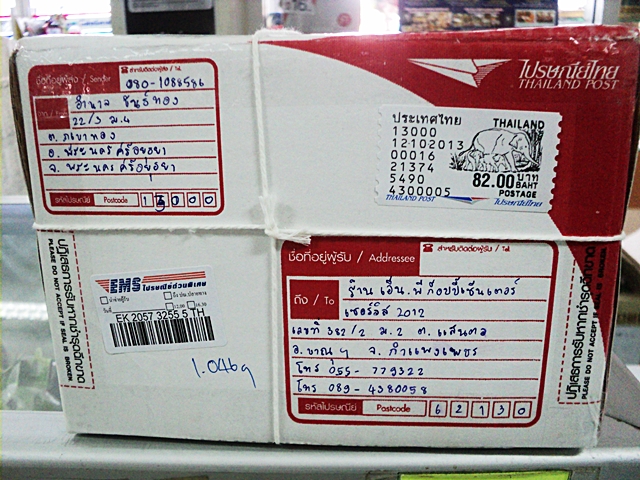 ชื่อที่อยู่ผู้ส่ง / Sender
สำหรับติดต่อผู้ส่ง / Tel.
080-1088586
อำนาจ ขันธ์ทอง
22/3 ม.4
ต. ภเขาทอง
อ. พระนครศรีอยุธยา
จ. พระนครศรีอยุธยา
รหัสไปรษณีย์ Postcode 13000
ไปรษณีย์ไทย
THAILAND POST
ประเทศไทย
13000
12102013
00016
21374
5490
4300005
THAILAND POST
THAILAND
82.00 บาท
BAHT
POSTAGE
ไปรษณีย์ไทย
ปฏิเสธการรับหากชำรุดฉีกขาด
PLEASE DO NOT ACCEPT IF SEAL IS BROKEN
EMS ไปรษณีย์ด่วนพิเศษ
นำจ่ายผู้รับ
วันที่
12.00
16.30
EK 2057 3255 5 TH
1.046g
ชื่อที่อยู่ผู้รับ / Addressee
สำหรับติดต่อผู้รับ / Tel.
ถึง / To
ร้าน เอ็น.พี ก็อปปี้เซ็นเตอร์
เซอร์วิส 2012
เลขที่ 382/2 ม.2 ต. แสนตอ
อ. ขาณุฯ จ. กำแพงเพชร
โทร 055-779322
โทร 089-4380058
รหัสไปรษณีย์ Postcode 62130
ปฏิเสธการรับหากชำรุดฉีกขาด
PLEASE DO NOT ACCEPT IF SEAL IS BROKEN